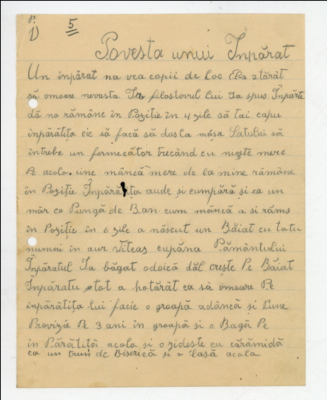 1) 5
Povesta unui Inpărat
Un inpărat nu vea copii de loc Ela atărăt
să omoare nevesta În filostorul lui Ia spus Inpărate
dă no rămâne în Poziție în 4 zile să tai capu
inpărătița zic să facă să dasta masa Satului să
întrube un formecător trecând cu niște mere
P acolo. une mâncă mere de la mine rămâne
în Poziție Inpărătița aude și cumpără și ea un
măr co Pungă de Ban cum mâncă a și rămas
în Poziție în o zile a născut un Băiat cu totu
numai în aur
Inpăratul Ia băgat odoică dăl crește Pe Băiat
Inpăratu tot a hotărât ca să omoare Pe
inpărătița lui facie o groapă adâncă și Pune
Proviză Pe 3 ani în groapă și o Bagă Pe
în Părătiță acolo și o zideste cu cărămidă
ca un turn de Biserică si o lasă acola